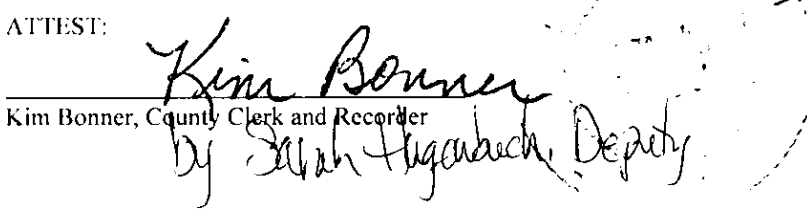 ATTEST:
Kim Bonner
Kim Bonner, County Clerk and Recorder
by Sarah Hugenbach, Deputy